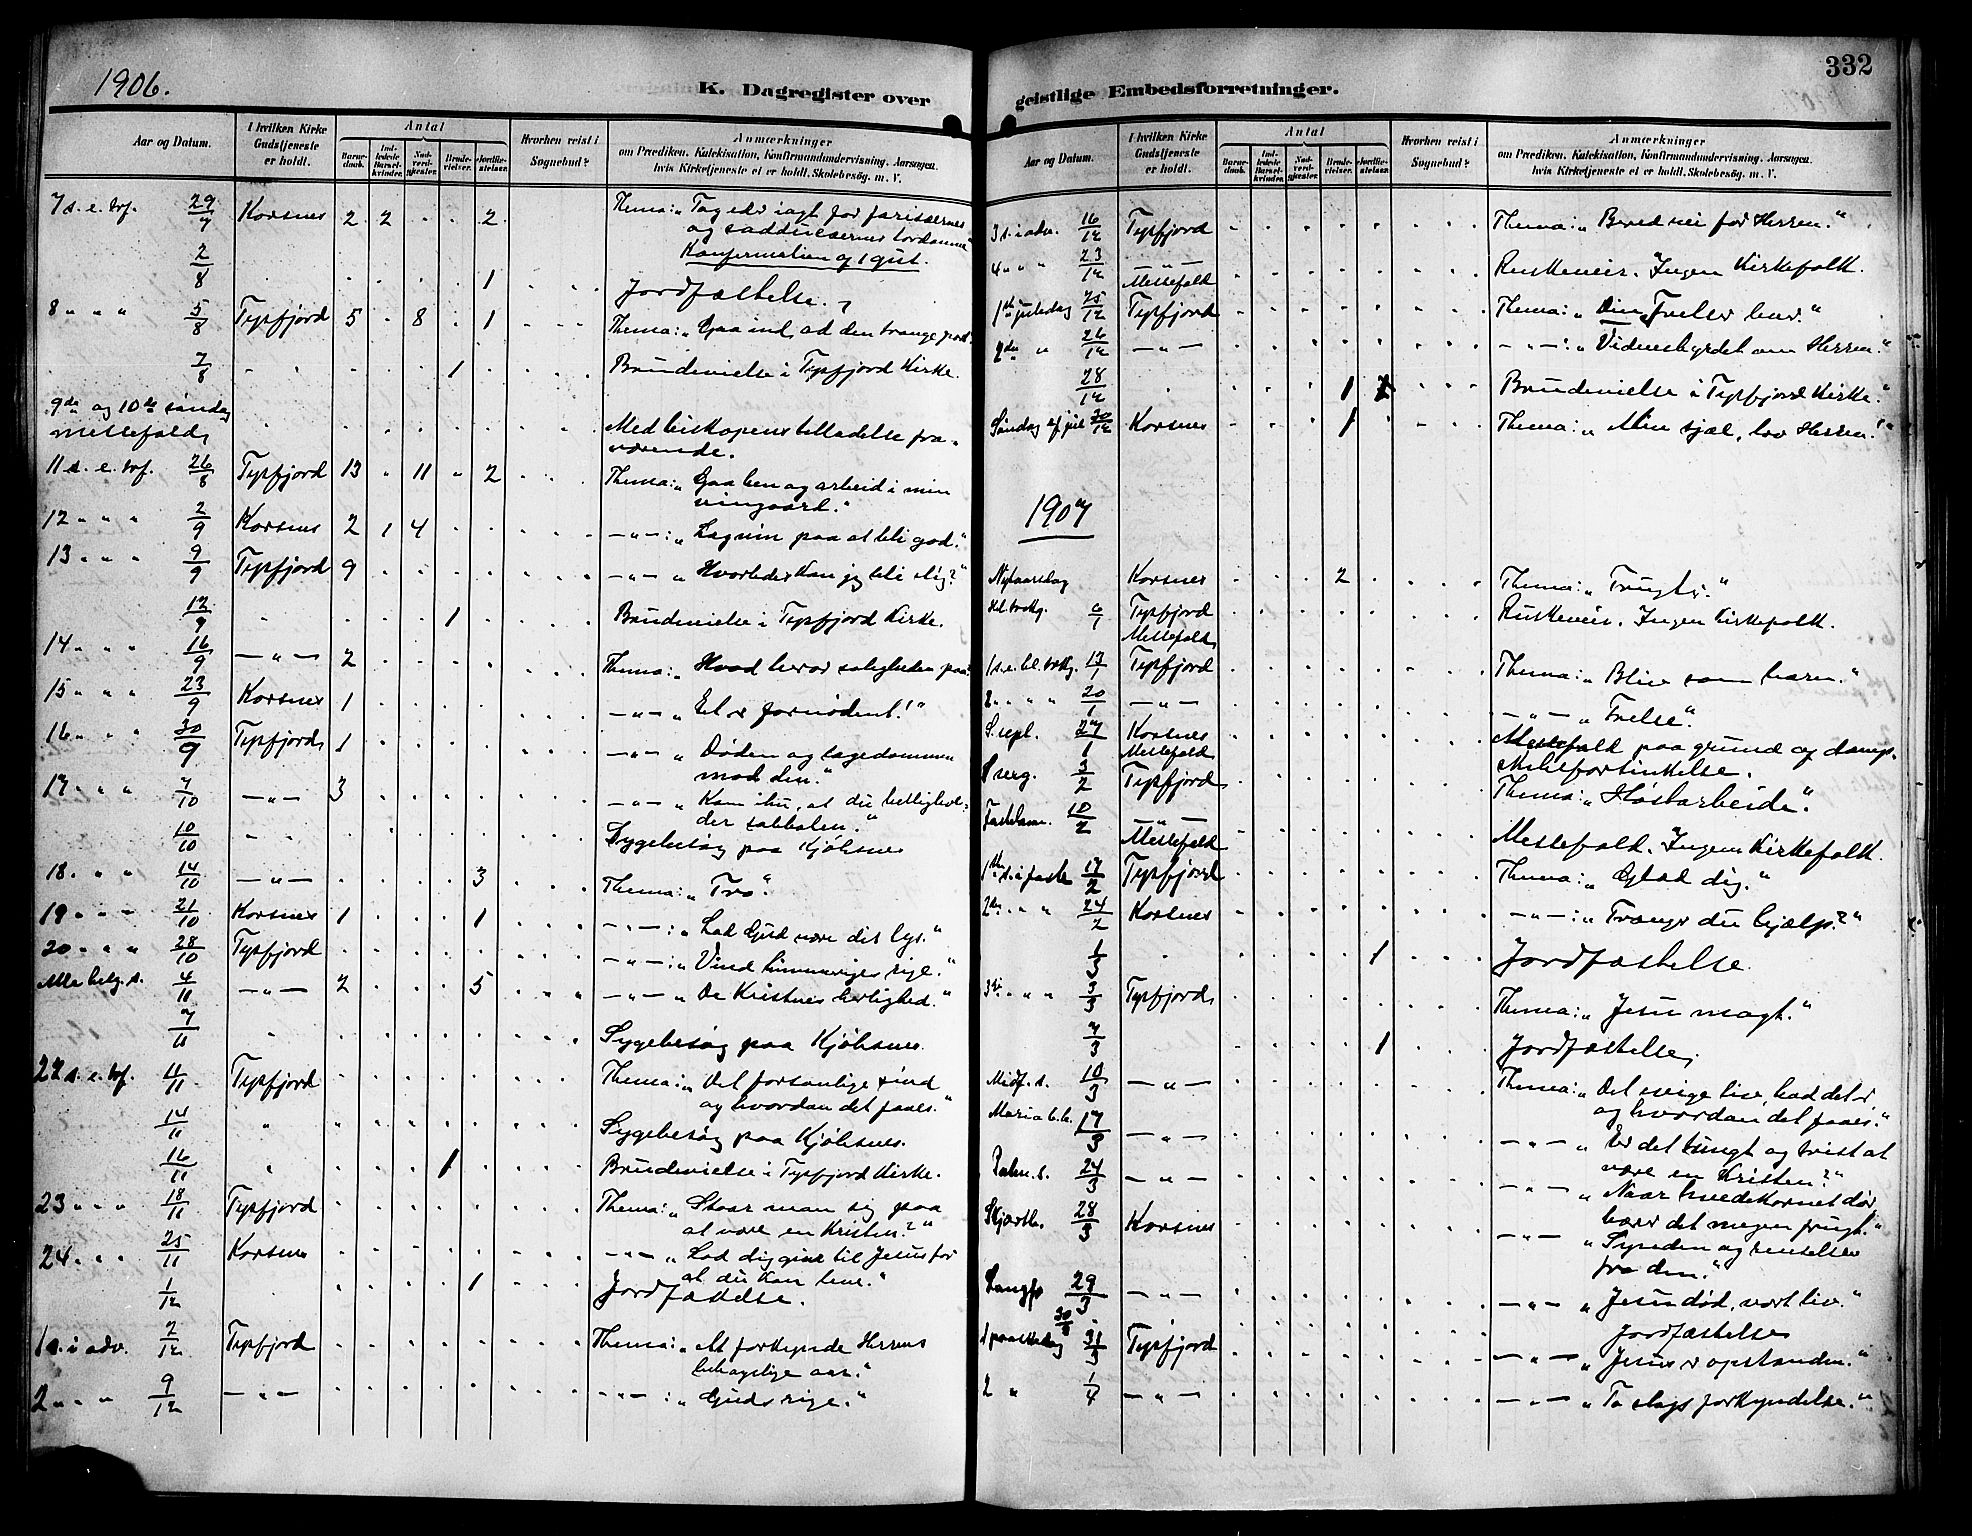 1906.
K. Dagregister over
Aar og Datum. I hvilken Kirke Gudstjeneste er holdt. Antal Barnedaab. Indledede Barselkvinder. Nadverdgjester. Brudevielser. Jordfæstelser. Hvorhen reist i Sognebud? Anmærkninger om Prædiken, Katekisation, Konfirmandundervisning, Aarsagen, hvis Kirketjeneste ei er holdt, Skolebesøg m. V.
7 s. e. tref. 29/7 Korsnes 2 2 . . 2 Thema: „Tag eder iagt for farisæernes
og sadducæernes surdeig"
Konfirmation af 1 gut.
2/8 . . . . 1 Jordfæstelse.
8 „ „ „ 5/8 Tepfjord 5 . 8 . 1 Thema: „Gaa ind ad den trange port.
7/8 . . . 1 . Brudevielse i Tepfjord Kirke.
9de og 10de søndag
messefald Med biskopens tilladelse fra-
værende.
11 s. e. tref. 26/8 Tepfjord 13 . 11 . 2 Thema: „Gaa hen og arbeid i min
vingaard."
12 „ „ „ 2/9 Korsnes 2 1 4 . . —„—: „Lag vin paa at bli god."
13 „ „ „ 9/9 Tepfjord 9 . . . . —„— „Hvorledes kan jeg bli slig?"
12/9 . . . 1 . Brudevielse i Tepfjord Kirke.
14 „ „ „ 16/9 —„— 2 Thema: „Hvad beror saligheden paa?
15 „ „ „ 23/9 Korsnes 1 —„— „Et er fornødent!"
16 „ „ „ 30/9 Tepfjord 1 —„— „Døden og lægedommen
mod den."
17 „ „ „ 7/10 —„— 3 —„— „Kom ihu, at du hellighol-
der sabbaten."
10/10 Sygebesøg paa Kjølnes
18 „ „ „ 14/10 —„— . . . . 3 Thema: „Tro".
19 „ „ „ 21/10 Korsnes 1 . . . 1 —„—: „Lad Gud være dit lys."
20 „ „ „ 28/10 Tepfjord —„—: „Vind himmeriges rige."
Alle helg. s. 4/11 —„— 2 . . . 5 —„— „De Kristnes herlighed."
7/11 Sygebesøg paa Kjølnes.
22 s. e. tref. 11/11 Tepfjord Thema: „Det forsonlige sind
og hvordan det faaes."
14/11 Sygebesøg paa Kjølnes.
16/11 . . . 1 . Brudevielse i Tepfjord Kirke.
23 „ „ „ 18/11 Tepfjord Thema: „Staar man sig paa
at være en Kristen?"
24 „ „ 25/11 Korsnes —„— „Lad dig give til Jesus for
at du kan leve."
1/12 . . . . 1 Jordfæstelse.
1 s. i adv. 2/12 Tepfjord Thema: „At forkynde Herrens
behagelige aar."
2 „ „ „ 9/12 —„— —„—: „Guds rige."
332
geistlige Embedsforretninger.
Aar og Datum. I hvilken Kirke Gudstjeneste er holdt. Antal Barnedaab. Indledede Barselkvinder. Nadverdgjester. Brudevielser. Jordfæstelser. Hvorhen reist i Sognebud? Anmærkninger om Prædiken, Katekisation, Konfirmandundervisning, Aarsagen, hvis Kirketjeneste ei er holdt, Skolebesøg m. V.
3 s. i adv. 16/12 Tepfjord Thema: „Bered vei for Herren."
4 „ „ „ 23/12 —„— Messefald Ruskeveir. Ingen Kirkefolk.
1ste juledag 25/12 Tepfjord Thema: „Din Frelser har."
2den „ 26/12 —„— —„—: „Vidnesbyrdet om Herren."
28/12 . . . 1 Brudevielse i Tepfjord Kirke."
Søndag ef jul 30/12 Korsnes . . . 1 Thema: „Min sjæl, lov Herren!"
1907
Nytaarsdag Korsnes . . . 2 . Thema: „Frygt ."
Hel. trekg. 6/1 Tepfjord Messefald Ruskeveir. Ingen Kirkefolk.
1 s. e. hl. trekg. 13/1 Tepfjord Thema: „Bliv som barn."
2 „ „ „ 20/1 —„— —„— „Frelse".
S. sept. 27/1 Korsnes Messefald Messefald paa grund af damp-
skibsforsinkelse.
S sexg. 3/2 Tepfjord Thema: „Høstarbeide".
Fastelavn. 10/2 —„— Messefald Messefald. Ingen Kirkefolk.
1ste s. i faste 17/2 Tepfjord Thema: „Glæd dig."
2den „ „ 24/2 Korsnes —„—: „Trænger du hjælp?"
1/3 . . . . 1 Jordfæstelse.
3die „ „ 3/3 Tepfjord Thema: „Jesu magt."
7/3 . . . . 1 Jordfæstelse,
Midf. s. 10/3 —„— Thema: „Det evige liv, hvad det er
og hvordan det faaes."
Maria b. b. 17/3 —„— —„— „Er det tungt og trist at
være en Kristen?"
Palm. s. 24/3 —„— —„— „Naar hvedekornet dør
bærer det megen frugt."
Skjærtb. 28/3 Korsnes —„— „Synden og renselsen
fra den."
Langfr 29/3 —„— —„— „Jesu død, vort liv."
30/3 Jordfæstelse
1 paaskedag 31/3 Tepfjord —„— „Jesus er opstanden."
2 „ 1/4 —„— —„— „To slags forkyndelse."